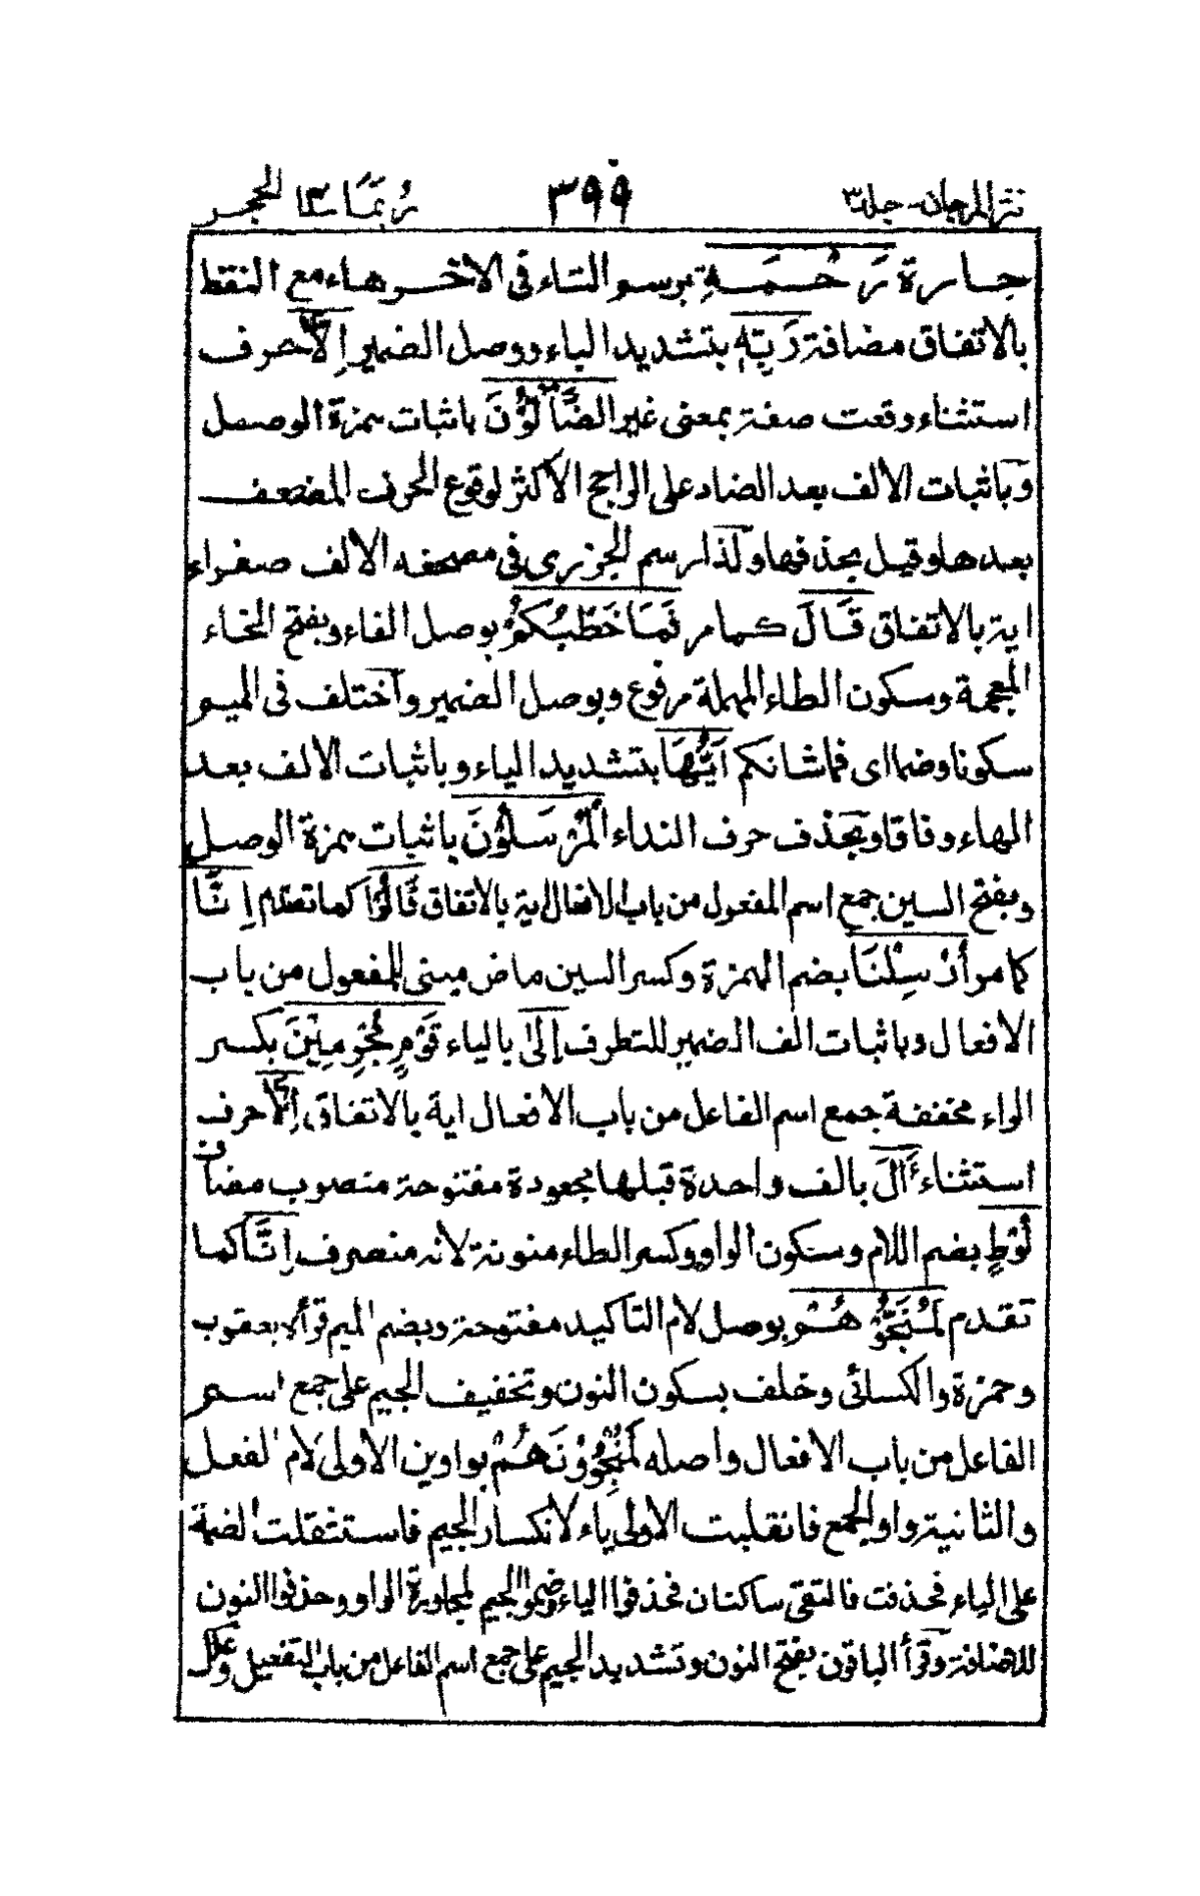 نثر المرجان - جلد ٣ ٣٩٩ رُبَمَا ١٤ الحجر
جارة رَحْمَةِ برسم التاء فى الاخر هاء مع النقط
بالاتفاق مضافة رَبِّهٖ بتشديد الباء ووصل الضمير اِلَّا حرف
استثناء وقعت صفة بمعنى غير الضَّآلُّوْنَ باثبات همزة الوصل
وباثبات الالف بعد الضاد على الراجح الاكثر لوقوع الحرف المضعف
بعدها وقيل بحذفها ولذا رسم الجزرى فى مصحفه الالف صفراء
اية بالاتفاق قَالَ كما مر فَمَا خَطْبُكُمْ بوصل الفاء وبفتح الخاء
المعجمة وسكون الطاء المهملة مرفوع وبوصل الضمير واختلف فى الميم
سكونا وضما اى فما شانكم اَيُّهَا بتشديد الياء وباثبات الالف بعد
الهاء وفاقا وبحذف حرف النداء الْمُرْسَلُوْنَ باثبات همزة الوصل
وبفتح السين جمع اسم المفعول من باب الافعال اية بالاتفاق قَالُوْا كما تقدم اِنَّا
كما مر اُرْسِلْنَا بضم الهمزة وكسر السين ماض مبنى للمفعول من باب
الافعال وباثبات الف الضمير للتطرف اِلٰى بالياء قَوْمٍ مُّجْرِمِيْنَ بكسر
الراء مخففة جمع اسم الفاعل من باب الافعال اية بالاتفاق اِلَّا حرف
استثناء اٰلَ بالف واحدة قبلها مجعودة مفتوحة منصوب مضاف
لُوْطٍ بضم اللام وسكون الواو وكسر الطاء منونة لانه منصرف اِنَّا كما
تقدم لَمُنَجُّوْهُمْ بوصل لام التاكيد مفتوحة وبضم الميم قرأ يعقوب
وحمزة والكسائى وخلف بسكون النون وتخفيف الجيم على جمع اسم
الفاعل من باب الافعال واصله لَمُنْجِوُوْنَهُمْ بواوين الاولى لام الفعل
والثانية واو الجمع فانقلبت الاولى ياء لانكسار الجيم فاستثقلت الضمة
على الياء فحذفت فالتقى ساكنان فحذفوا الياء وضموا الجيم لمجاورة الواو وحذفوا النون
للاضافة وقرأ الباقون بفتح النون وتشديد الجيم على جمع اسم الفاعل من باب التفعيل وعلى كل